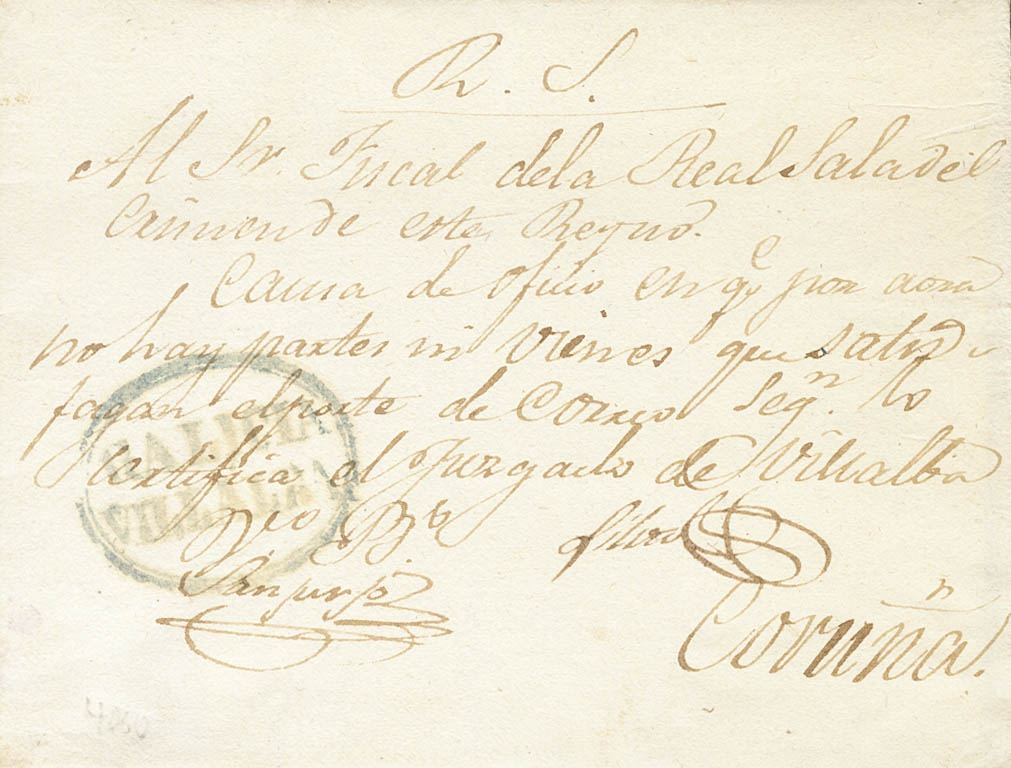 R. S.
Al Sr. Fiscal dela Real Sala del
Crimen de este Reyno.
Causa de oficio en qe por aora
no hay partes ni vienes que satis
fagan el porte de Correo Segn. lo
certifica el Juzgado de Villalba
GALICIA
VILLALBA
Sanjurjo
Coruña.